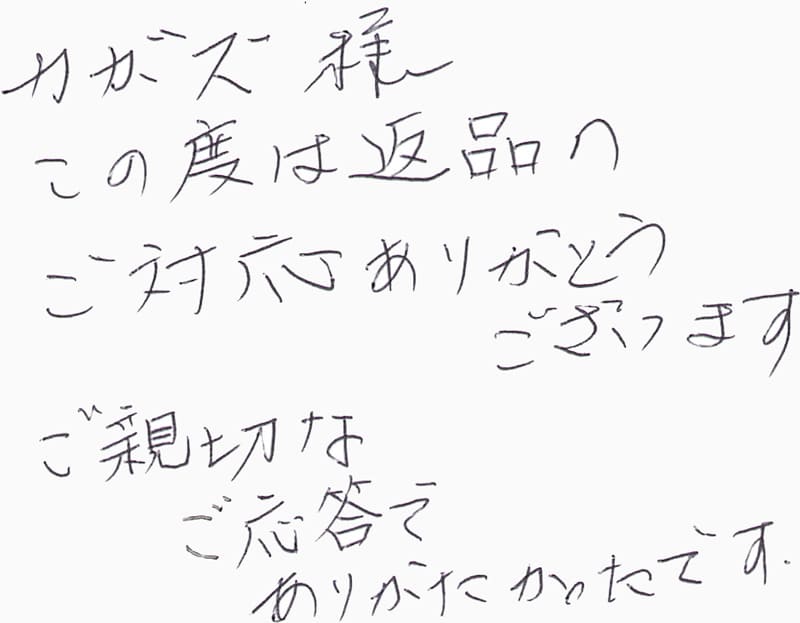 カガズ 様
この度は返品へ
ご対応ありがとう
ございます
ご親切な
ご応答で
ありがたかったです.